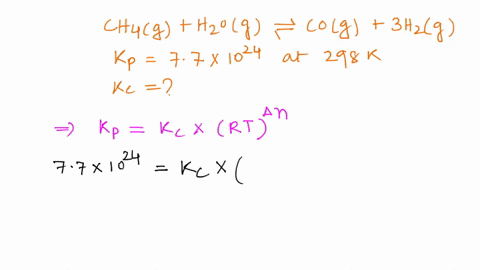 CH4(g) + H2O(g) ⇌ CO(g) + 3H2(g)
Kp = 7.7 × 10^24 at 298 K
Kc = ?
⇒ Kp = Kc × (RT)^Δn
7.7 × 10^24 = Kc × (